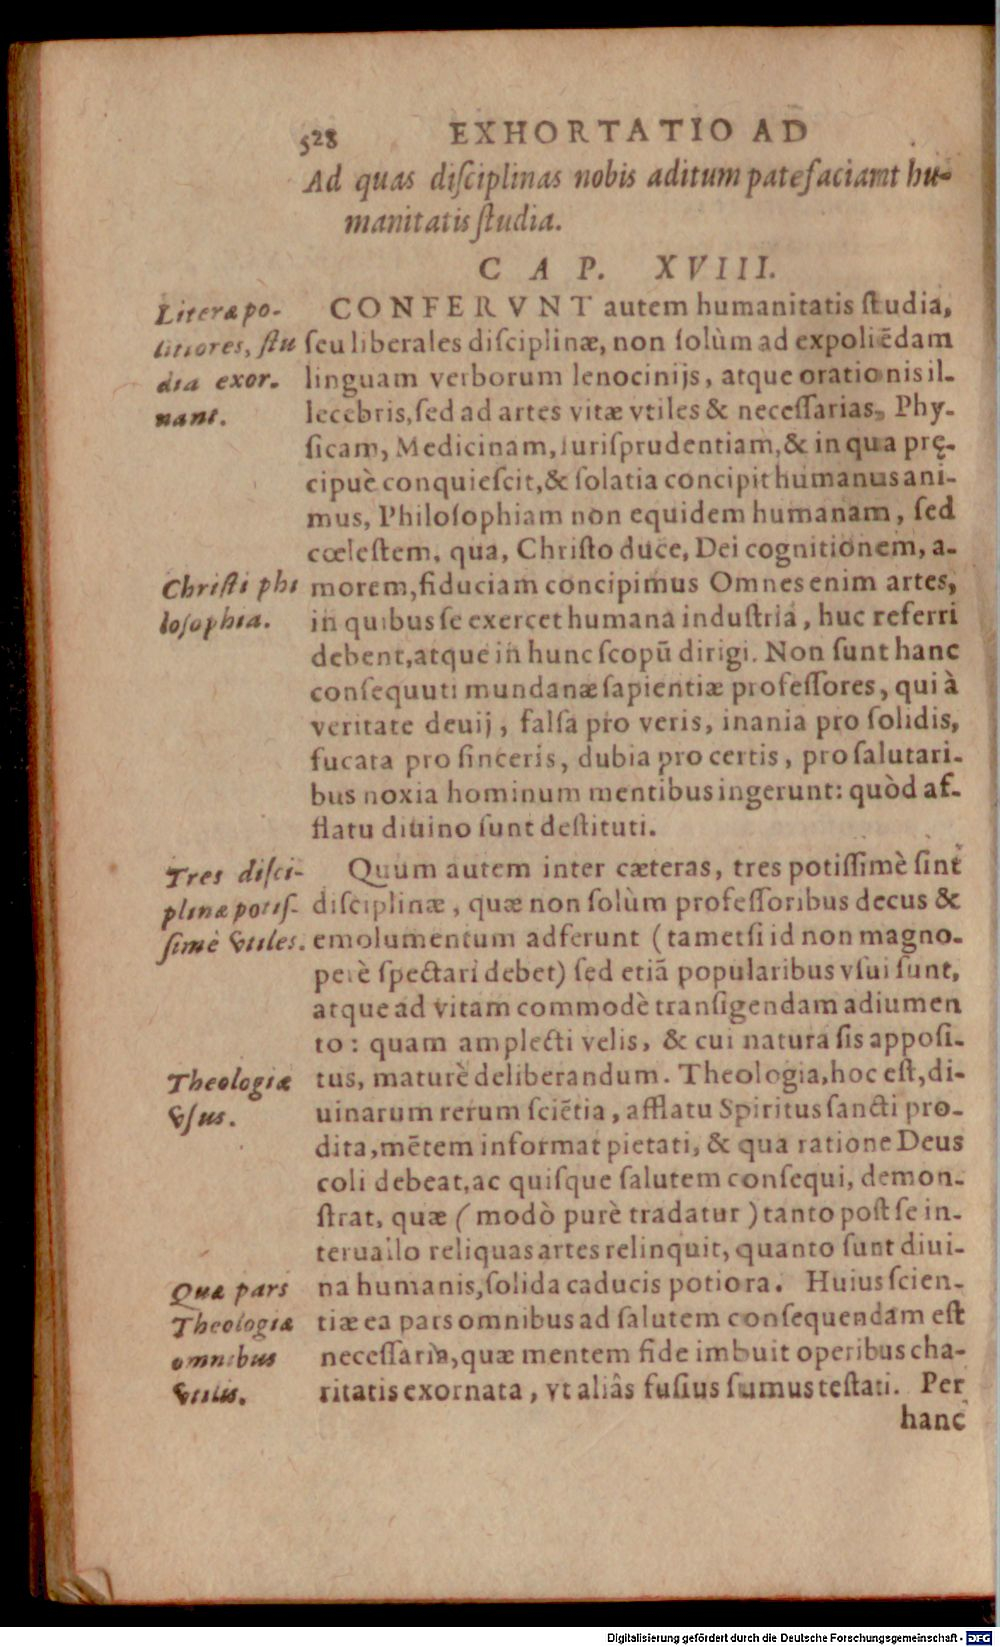 528 EXHORTATIO AD
Ad quas diſciplinas nobis aditum patefaciant hu-
manitatis ſtudia.
CAP. XVIII.
Literæ po-
litiores, ſtu
dia exor-
nant.
CONFERVNT autem humanitatis ſtudia,
ſeu liberales diſciplinæ, non ſolùm ad expoliēdam
linguam verborum lenocinijs, atque orationis il-
lecebris, ſed ad artes vitæ vtiles & neceſſarias, Phy-
ſicam, Medicinam, iuriſprudentiam, & in qua prę-
cipuè conquieſcit, & ſolatia concipit humanus ani-
mus, Philoſophiam non equidem humanam, ſed
cœleſtem, qua, Chriſto duce, Dei cognitionem, a-
Chriſti phi
loſophia.
morem, fiduciam concipimus Omnes enim artes,
in quibus ſe exercet humana induſtria, huc referri
debent, atque in hunc ſcopū dirigi. Non ſunt hanc
conſequuti mundanæ ſapientiæ profeſſores, qui à
veritate deuij, falſa pro veris, inania pro ſolidis,
fucata pro ſinceris, dubia pro certis, pro ſalutari-
bus noxia hominum mentibus ingerunt: quòd af-
flatu diuino ſunt deſtituti.
Tres diſci-
plinæ potiſ-
ſimè vtiles.
Quum autem inter cæteras, tres potiſſimè ſint
diſciplinæ, quæ non ſolùm profeſſoribus decus &
emolumentum adferunt (tametſi id non magno-
perè ſpectari debet) ſed etiā popularibus vſui ſunt,
atque ad vitam commodè tranſigendam adiumen
to: quam amplecti velis, & cui natura ſis appoſi-
Theologiæ
vſus.
tus, maturè deliberandum. Theologia, hoc eſt, di-
uinarum rerum ſciētia, afflatu Spiritus ſancti pro-
dita, mētem informat pietati, & qua ratione Deus
coli debeat, ac quiſque ſalutem conſequi, demon-
ſtrat, quæ (modò purè tradatur) tanto poſt ſe in-
teruallo reliquas artes relinquit, quanto ſunt diui-
Quæ pars
Theologiæ
omnibus
vtilis.
na humanis, ſolida caducis potiora. Huius ſcien-
tiæ ea pars omnibus ad ſalutem conſequendam eſt
neceſſaria, quæ mentem fide imbuit operibus cha-
ritatis exornata, vt aliâs fuſius ſumus teſtati. Per
hanc
Digitalisierung gefördert durch die Deutsche Forschungsgemeinschaft - DFG